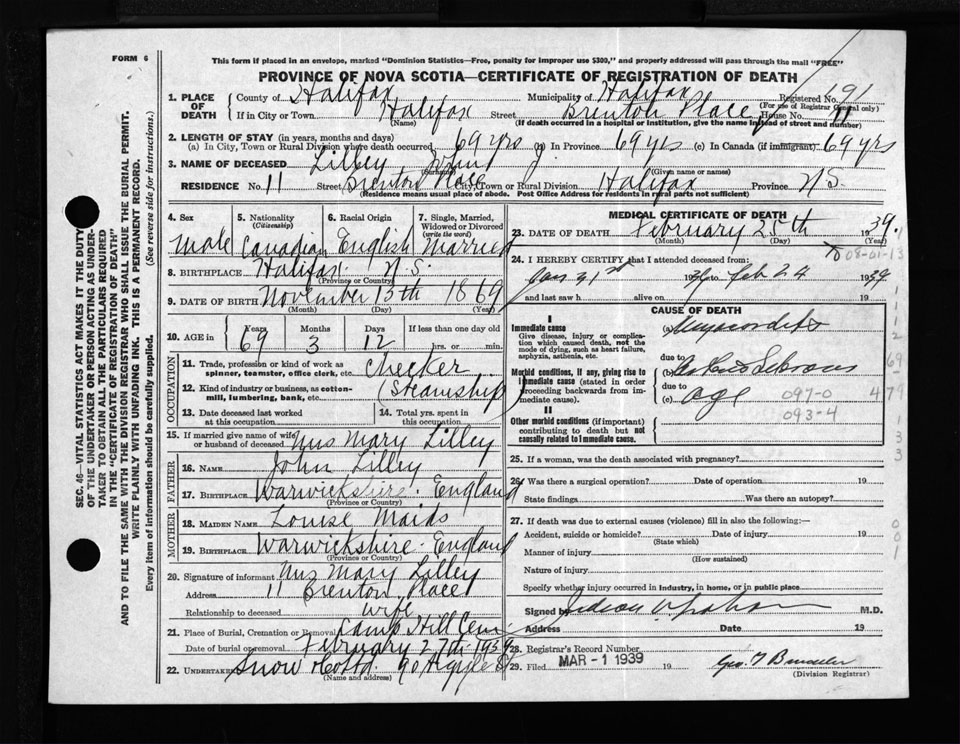 FORM 6
This form if placed in an envelope, marked "Dominion Statistics—Free, penalty for improper use $300," and properly addressed will pass through the mail "FREE"
PROVINCE OF NOVA SCOTIA—CERTIFICATE OF REGISTRATION OF DEATH
SEC. 46—VITAL STATISTICS ACT MAKES IT THE DUTY
OF THE UNDERTAKER OR PERSON ACTING AS UNDER-
TAKER TO OBTAIN ALL THE PARTICULARS REQUIRED
IN THE "CERTIFICATE OF REGISTRATION OF DEATH"
AND TO FILE THE SAME WITH THE DIVISION REGISTRAR WHO SHALL ISSUE THE BURIAL PERMIT.
WRITE PLAINLY WITH UNFADING INK. THIS IS A PERMANENT RECORD.
Every item of information should be carefully supplied. (See reverse side for instructions.)
1. PLACE OF DEATH County of Halifax Municipality of Halifax Registered No. 491
(For use of Registrar General only)
If in City or Town Halifax Street Brenton Place House No. 11
(Name) (If death occurred in a hospital or institution, give the name instead of street and number)
2. LENGTH OF STAY (in years, months and days)
(a) In City, Town or Rural Division where death occurred 69 yrs (b) In Province 69 yrs (c) In Canada (if immigrant) 69 yrs
3. NAME OF DECEASED Lilley J.
(Surname) (Given name or names)
RESIDENCE No. 11 Street Brenton Place City, Town or Rural Division Halifax Province N.S.
(Residence means usual place of abode. Post Office Address for residents in rural parts not sufficient)
4. Sex
Male
5. Nationality
(Citizenship)
Canadian
6. Racial Origin
English
7. Single, Married, Widowed or Divorced
(write the word)
Married
8. BIRTHPLACE Halifax N.S.
(Province or Country)
9. DATE OF BIRTH November 13th 1869
(Month) (Day) (Year)
10. AGE in Years Months Days If less than one day old
69 3 12 hrs. or min.
OCCUPATION
11. Trade, profession or kind of work as spinner, teamster, office clerk, etc. Checker
12. Kind of industry or business, as cotton-mill, lumbering, bank, etc. (Steamship)
13. Date deceased last worked at this occupation
14. Total yrs. spent in this occupation
15. If married give name of wife or husband of deceased Mrs Mary Lilley
FATHER
16. Name John Lilley
17. Birthplace Warwickshire. England
(Province or Country)
MOTHER
18. Maiden Name Louise Maids
19. Birthplace Warwickshire - England
(Province or Country)
20. Signature of informant Mrs Mary Lilley
Address 11 Brenton Place
Relationship to deceased wife
21. Place of Burial, Cremation or Removal Camp Hill Cem.
Date of burial or removal February 27th 1939
22. Undertaker Snow & Co Ltd. 90 Argyle St
(Name and address)
MEDICAL CERTIFICATE OF DEATH
23. DATE OF DEATH February 25th 1939.
(Month) (Day) (Year)
24. I HEREBY CERTIFY that I attended deceased from:
Jan 31st to Feb 24 1939
and last saw h alive on 19
CAUSE OF DEATH
I
Immediate cause
Give disease, injury or complication which caused death, not the mode of dying, such as heart failure, asphyxia, asthenia, etc.
(a) Myocarditis
due to
Morbid conditions, if any, giving rise to immediate cause (stated in order proceeding backwards from immediate cause).
(b)
due to
(c) age 097-0
093-4
II
Other morbid conditions (if important) contributing to death but not causally related to immediate cause.
25. If a woman, was the death associated with pregnancy?
26. Was there a surgical operation? Date of operation 19
State findings Was there an autopsy?
27. If death was due to external causes (violence) fill in also the following:—
Accident, suicide or homicide? Date of injury 19
(State which)
Manner of injury
(How sustained)
Nature of injury
Specify whether injury occurred in industry, in home, or in public place
Signed by M.D.
Address Date 19
28. Registrar's Record Number
29. Filed MAR - 1 1939 19
(Division Registrar)